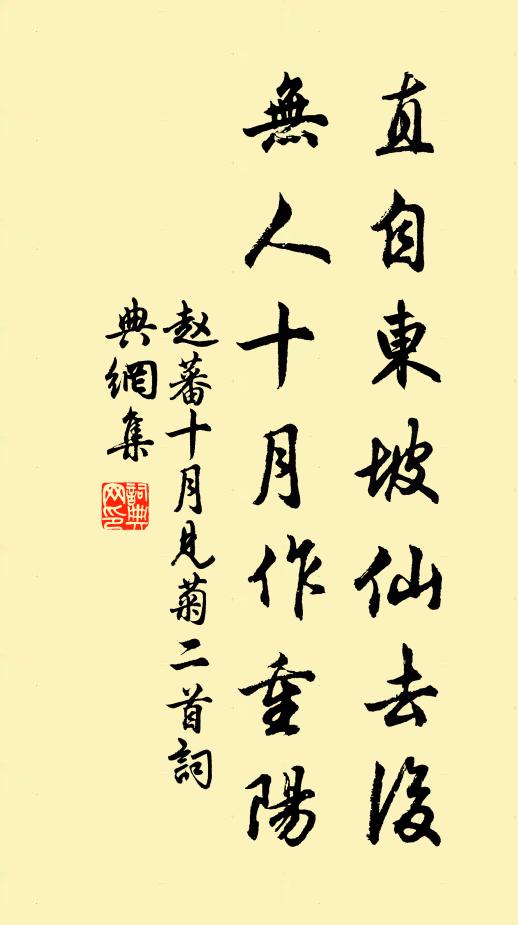 直自東坡仙去後
無人十月作重陽
赵蕃十月見菊二首詞
典網集
詞典
网印